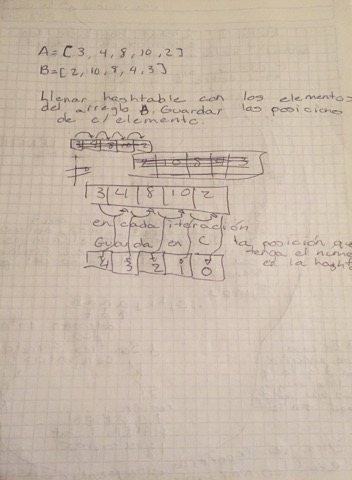 A = [ 3, 4, 8, 10, 2 ]
B = [ 2, 10, 8, 4, 3 ]
Llenar hashtable con los elementos
del arreglo B. Guardar las posiciones
de c/elemento.
3 4 8 10 2
2 10 8 4 3
3 4 8 10 2
en cada iteración
Guarda en C la posición que
tenga el núme
en la hasht
4 3 2 1 0